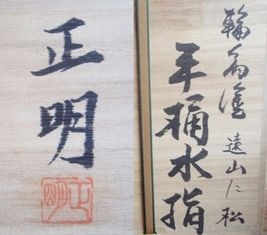 正明
正明
輪島塗 遠山に松
手桶水指